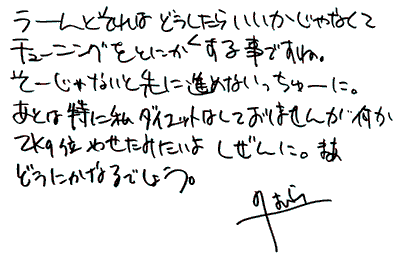 うーんとそれは どうしたらいいかじゃなくて
チューニングをとにかくする事ですね。
そーじゃないと先に進めないっちゅーに。
あとは特に私ダイエットはしておりませんが何か
2kg位 やせたみたいよ しぜんに。まあ
どうにかなるでしょう。